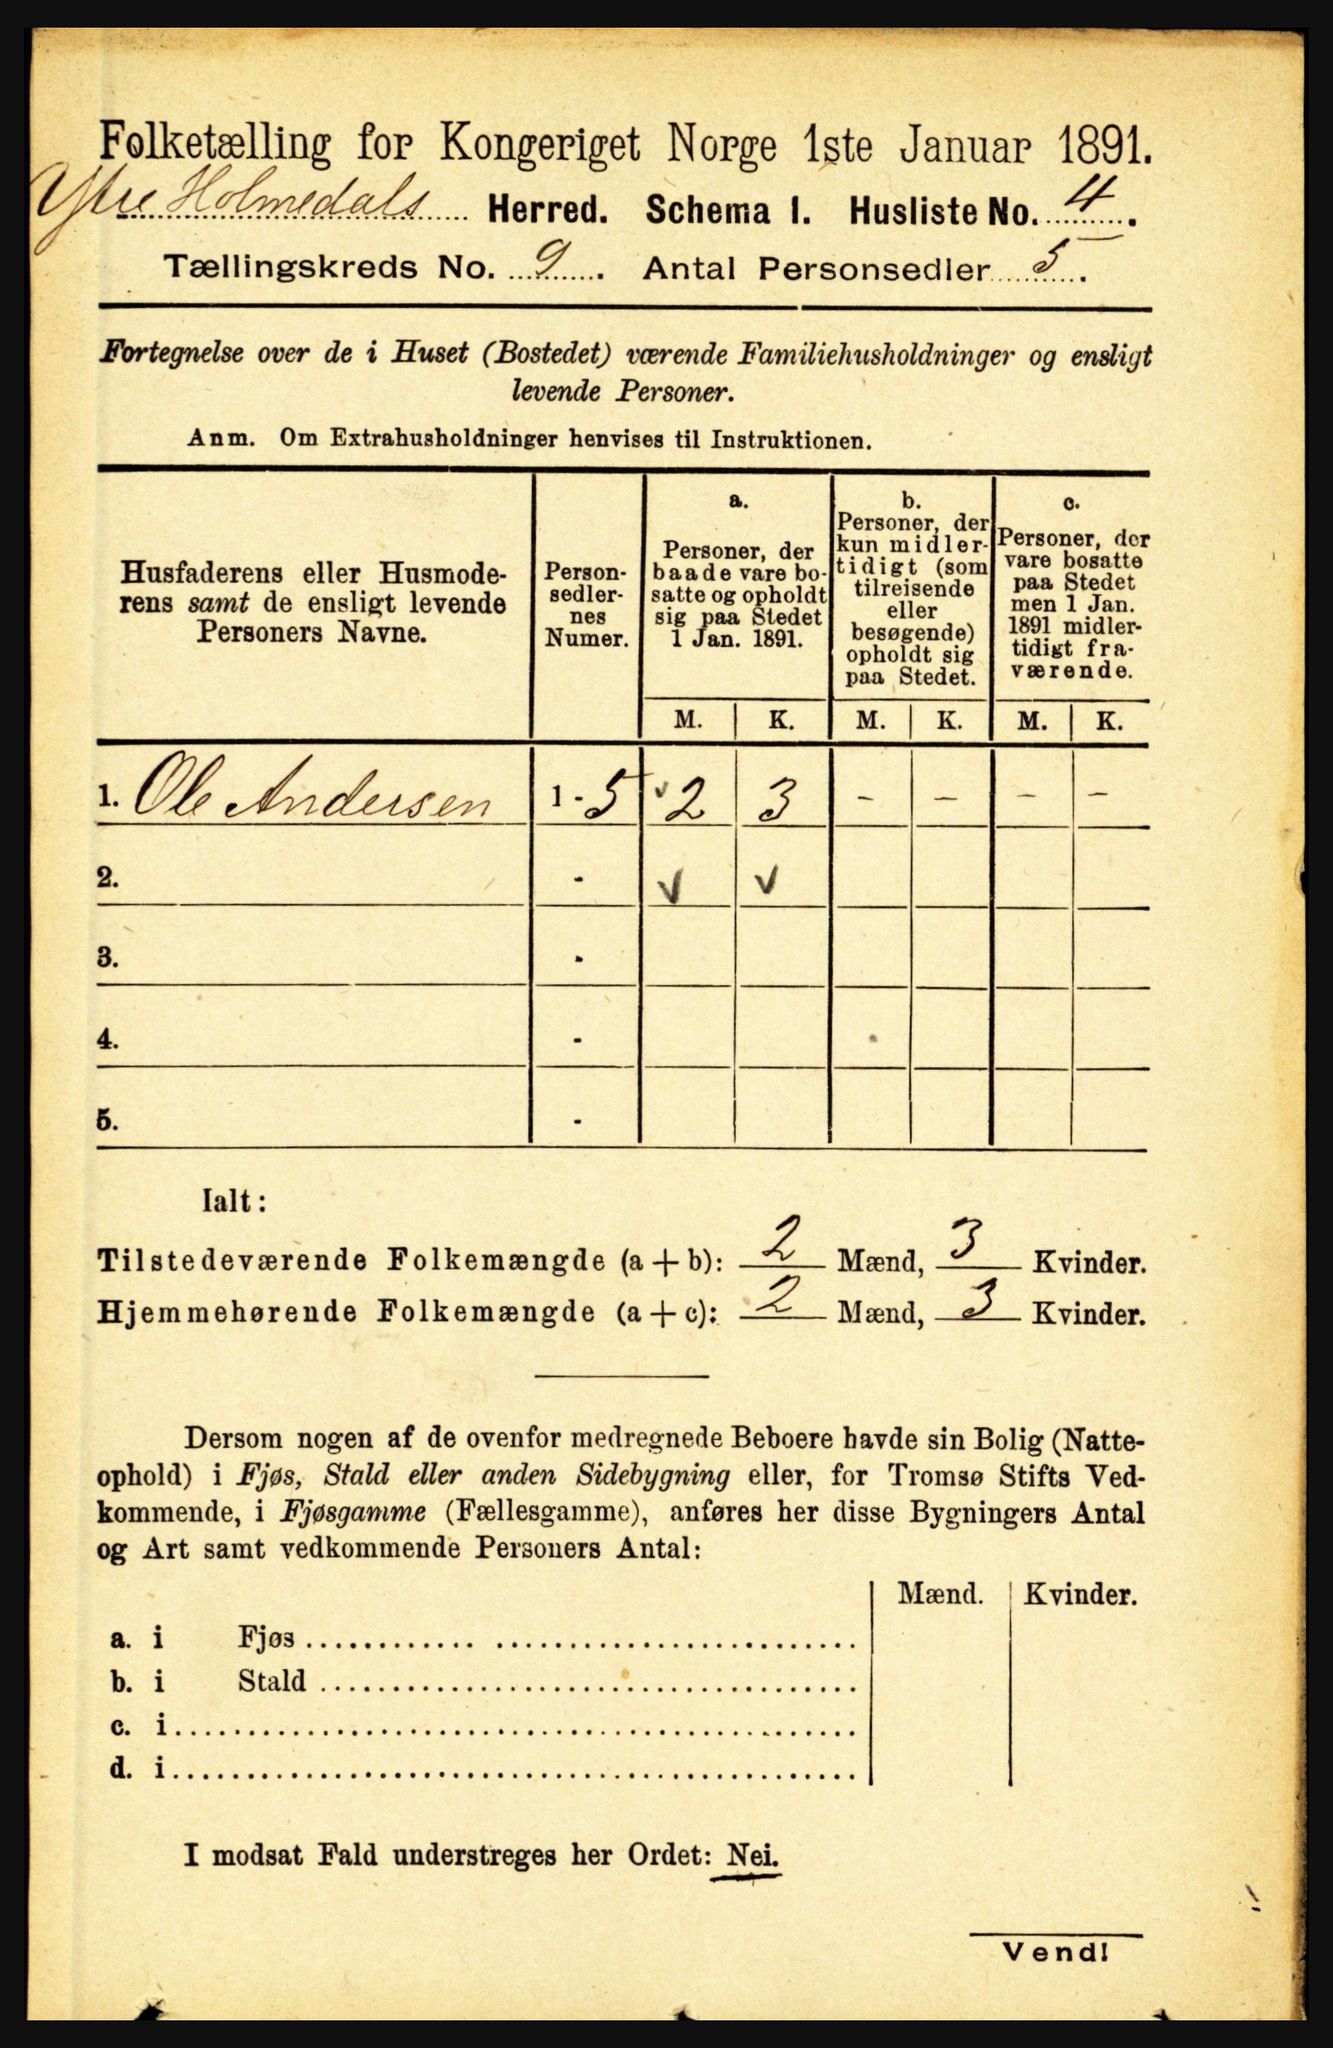 Folketælling for Kongeriget Norge 1ste Januar 1891.
Ytre Holmedals Herred. Schema I. Husliste No. 4.
Tællingskreds No. 9. Antal Personsedler 5.
Fortegnelse over de i Huset (Bostedet) værende Familiehusholdninger og ensligt
levende Personer.
Anm. Om Extrahusholdninger henvises til Instruktionen.
Husfaderens eller Husmode-
rens samt de ensligt levende
Personers Navne.
Person-
sedler-
nes
Numer.
a.
Personer, der
baade vare bo-
satte og opholdt
sig paa Stedet
1 Jan. 1891.
b.
Personer, der
kun midler-
tidigt (som
tilreisende
eller
besøgende)
opholdt sig
paa Stedet.
c.
Personer, der
vare bosatte
paa Stedet
men 1 Jan.
1891 midler-
tidigt fra-
værende.
M. K. M. K. M. K.
1. Ole Andersen 1 - 5 ✓ 2 3 - - - -
2. - ✓ ✓
3. -
4. -
5. -
Ialt:
Tilstedeværende Folkemængde (a + b): 2 Mænd, 3 Kvinder.
Hjemmehørende Folkemængde (a + c): 2 Mænd, 3 Kvinder.
Dersom nogen af de ovenfor medregnede Beboere havde sin Bolig (Natte-
ophold) i Fjøs, Stald eller anden Sidebygning eller, for Tromsø Stifts Ved-
kommende, i Fjøsgamme (Fællesgamme), anføres her disse Bygningers Antal
og Art samt vedkommende Personers Antal:
Mænd. Kvinder.
a. i Fjøs
b. i Stald
c. i
d. i
I modsat Fald understreges her Ordet: Nei.
Vend!